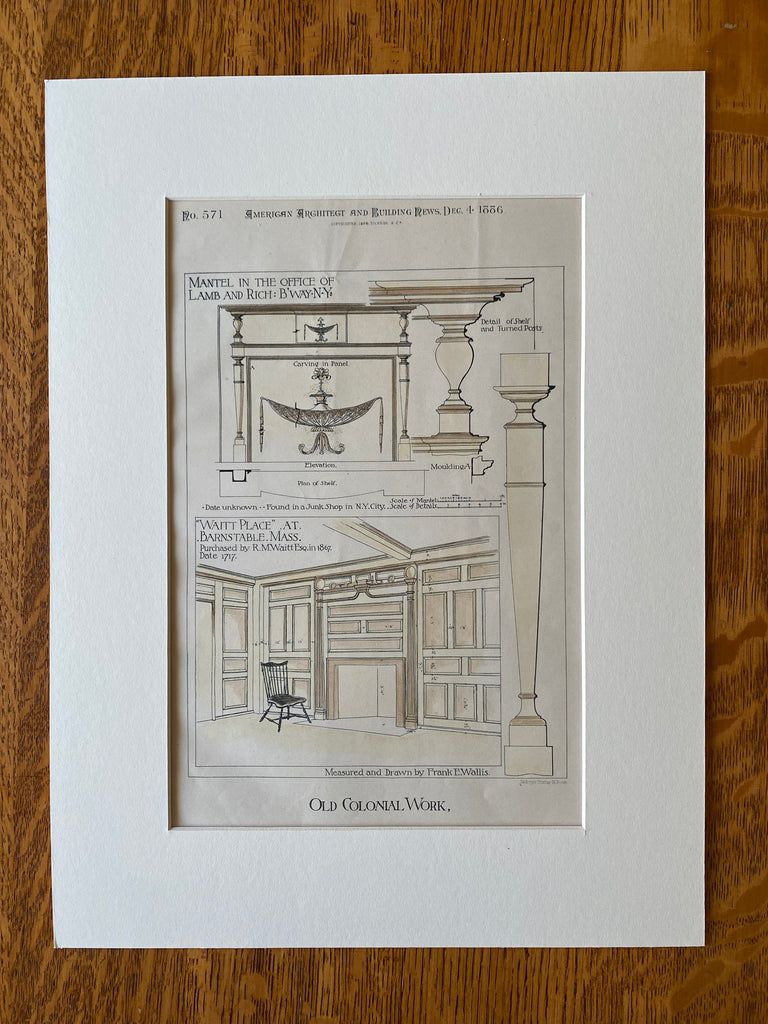 No. 571 American Architect and Building News, Dec. 4 1886
Mantel in the office of
Lamb and Rich: B'way-N-Y:
Detail of Shelf
and Turned Posts
Carving in Panel.
Elevation.
Moulding A
Plan of Shelf.
Scale of Mantel
Date unknown - Found in a Junk Shop in N.Y. City. Scale of Details
"Waitt Place" at
Barnstable. Mass.
Purchased by R.M. Waitt Esq. in 1867.
Date 1717.
Measured and Drawn by Frank E. Wallis.
Old Colonial Work,